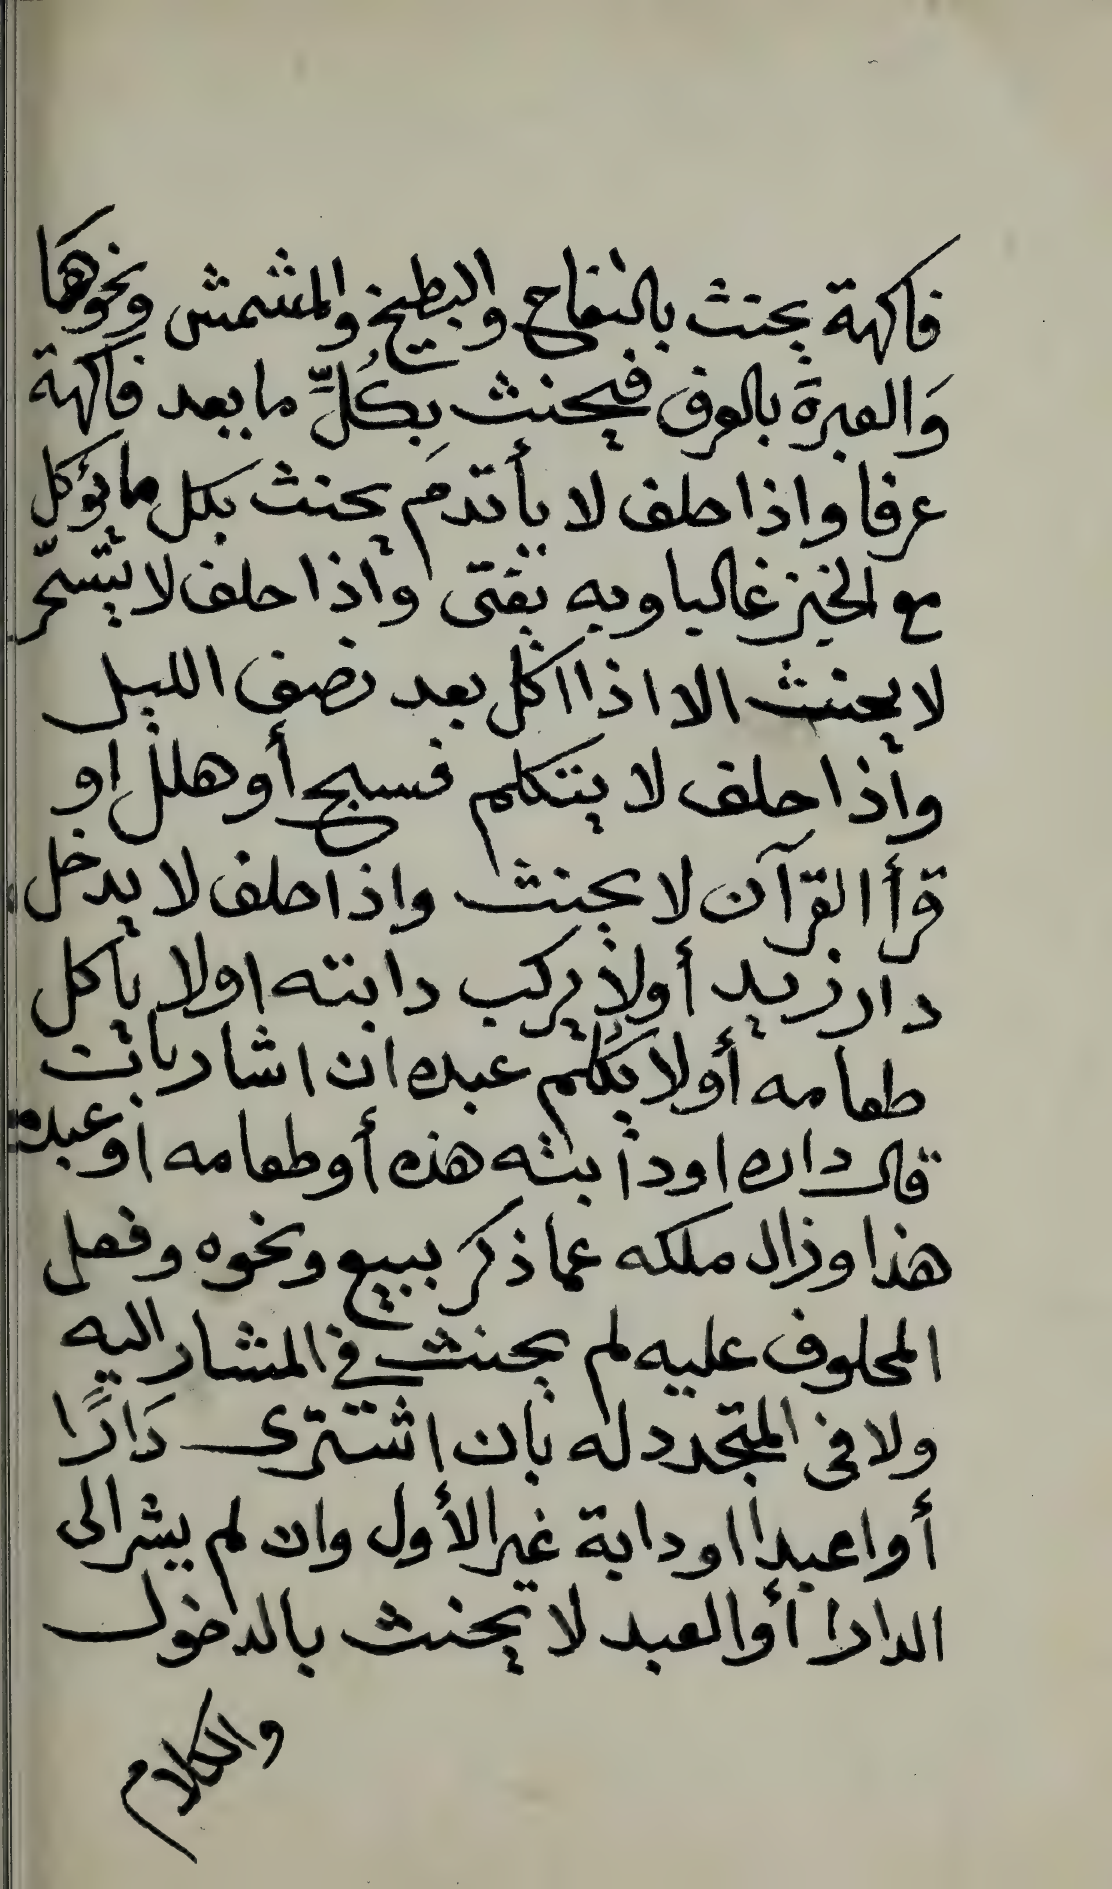 فاكهة يحنث بالتفاح والبطيخ والمشمش ونحوها
وَالعبرة بالعرف فيحنث بِكُلِّ ما يعد فاكهة
عرفا واذا حلف لا يأتدم يحنث بكل ما يؤكل
مع الخبز غالبا وبه يفتى واذا حلف لا يتسحّر
لا يحنث الا اذا اكل بعد نصف الليل
واذا حلف لا يتكلم فسبح أو هلل او
قرأ القرآن لا يحنث واذا حلف لا يدخل
دار زيد أولا يركب دابته اولا يأكل
طعامه أولا يكلم عبده ان اشار بان
قال داره اودابته هذه أوطعامه اوعبده
هذا وزال ملكه عما ذكر ببيع ونحوه وفعل
المحلوف عليه لم يحنث في المشار اليه
ولا في المتجدد له بان اشترى دَارًا
أواعبدا اودابة غير الأول وان لم يشر الى
الدار أوالعبد لا يحنث بالدخول
والكلام